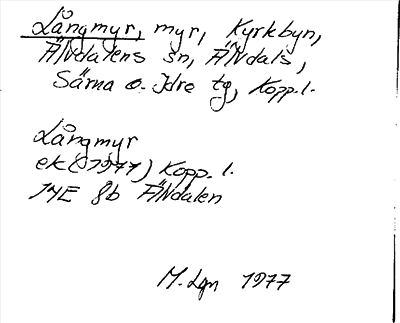 Långmyr, myr, Kyrkbyn,
Älvdalens sn, Älvdals,
Särna o. Idre tg, Kopp.l.
Långmyr
ek (1977) Kopp. l.
14E 8b Älvdalen
M. Lgn 1977